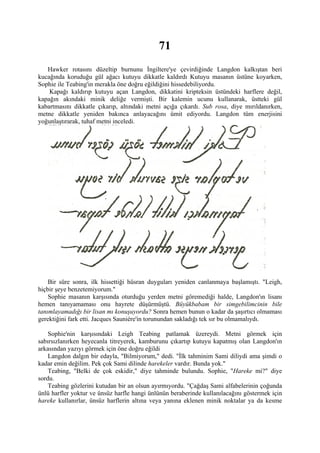 71
Hawker rotasını düzeltip burnunu İngiltere'ye çevirdiğinde Langdon kalkıştan beri
kucağında koruduğu gül ağacı kutuyu dikkatle kaldırdı Kutuyu masanın üstüne koyarken,
Sophie ile Teabing'in merakla öne doğru eğildiğini hissedebiliyordu.
Kapağı kaldırıp kutuyu açan Langdon, dikkatini kripteksin üstündeki harflere değil,
kapağın akındaki minik deliğe vermişti. Bir kalemin ucunu kullanarak, üstteki gül
kabartmasını dikkatle çıkarıp, altındaki metni açığa çıkardı. Sub rosa, diye mırıldanırken,
metne dikkatle yeniden bakınca anlayacağını ümit ediyordu. Langdon tüm enerjisini
yoğunlaştırarak, tuhaf metni inceledi.
Bir süre sonra, ilk hissettiği hüsran duyguları yeniden canlanmaya başlamıştı. "Leigh,
hiçbir şeye benzetemiyorum."
Sophie masanın karşısında oturduğu yerden metni göremediği halde, Langdon'ın lisanı
hemen tanıyamaması onu hayrete düşürmüştü. Büyükbabam bir simgebilimcinin bile
tanımlayamadığı bir lisan mı konuşuyordu? Sonra hemen bunun o kadar da şaşırtıcı olmaması
gerektiğini fark etti. Jacques Saunière'in torunundan sakladığı tek sır bu olmamalıydı.
Sophie'nin karşısındaki Leigh Teabing patlamak üzereydi. Metni görmek için
sabırsızlanırken heyecanla titreyerek, kamburunu çıkartıp kutuya kapatmış olan Langdon'ın
arkasından yazıyı görmek için öne doğru eğildi
Langdon dalgın bir edayla, "Bilmiyorum," dedi. "İlk tahminim Sami diliydi ama şimdi o
kadar emin değilim. Pek çok Sami dilinde harekeler vardır. Bunda yok."
Teabing, "Belki de çok eskidir," diye tahminde bulundu. Sophie, "Hareke mi?" diye
sordu.
Teabing gözlerini kutudan bir an olsun ayırmıyordu. "Çağdaş Sami alfabelerinin çoğunda
ünlü harfler yoktur ve ünsüz harfle hangi ünlünün beraberinde kullanılacağını göstermek için
hareke kullanırlar, ünsüz harflerin altına veya yanına eklenen minik noktalar ya da kesme